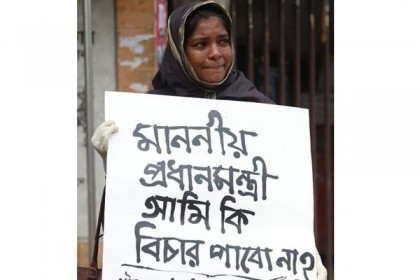 মাননীয়
প্রধানমন্ত্রী
আমি কি
বিচার পাবো না?